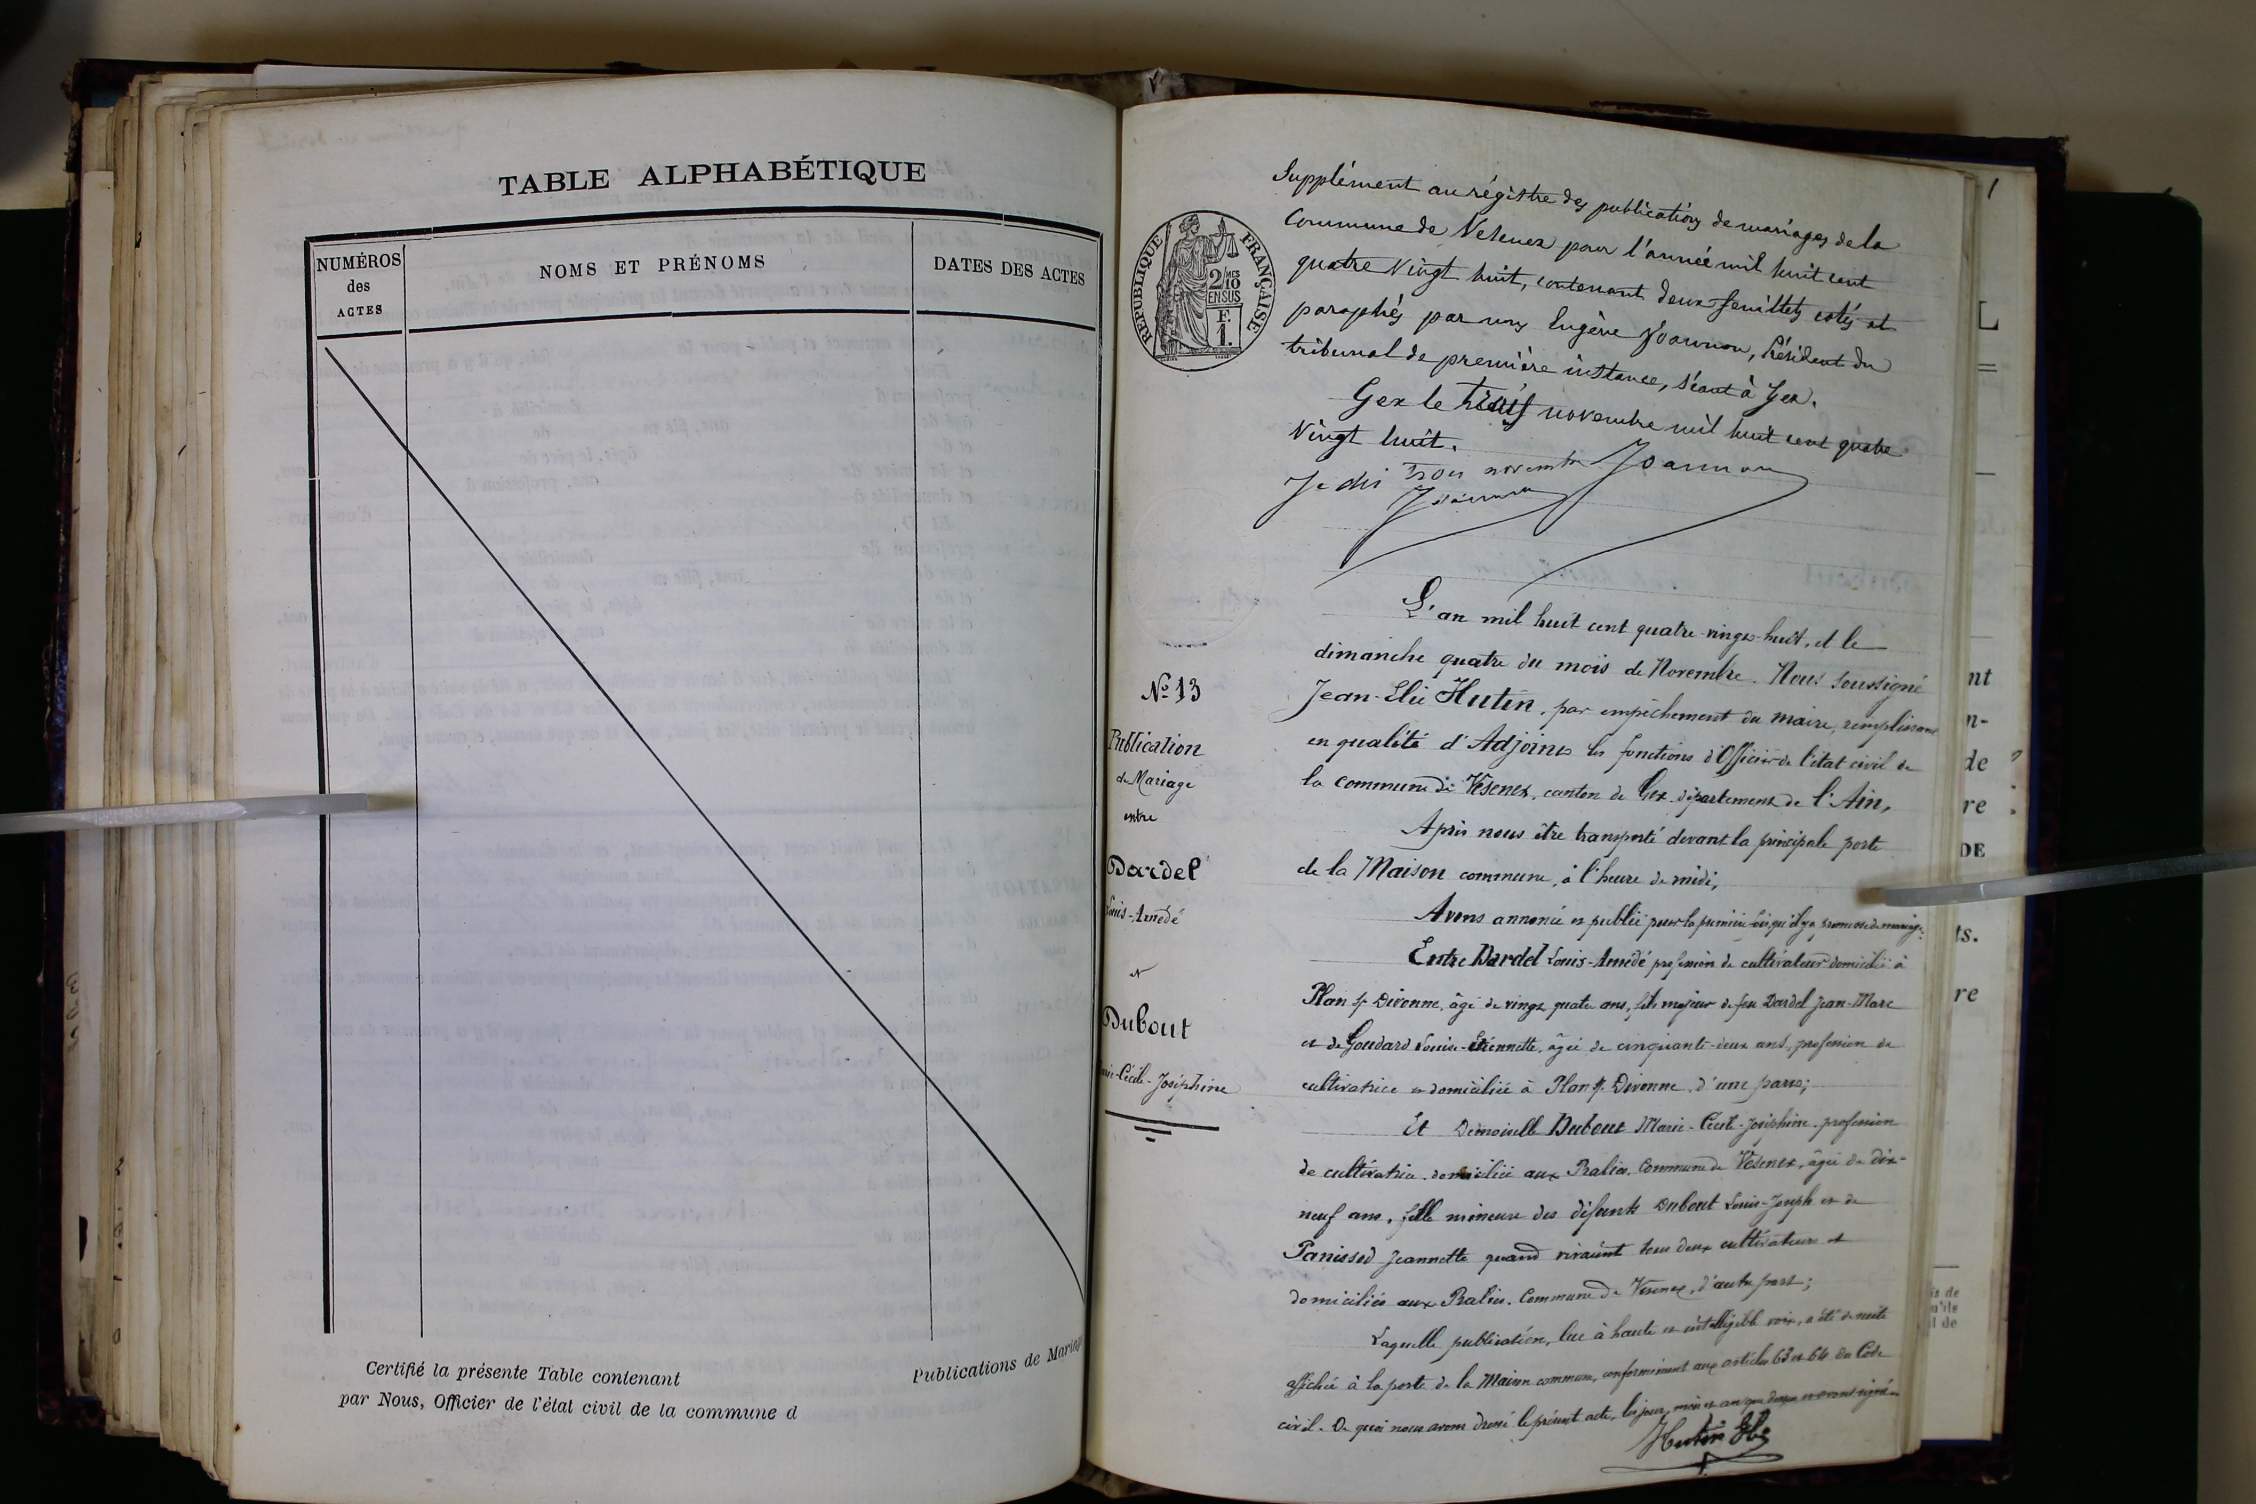 TABLE ALPHABÉTIQUE
NUMÉROS
des
ACTES
NOMS ET PRÉNOMS
DATES DES ACTES
Certifié la présente Table contenant
Publications de Mariage
par Nous, Officier de l'état civil de la commune d
Supplément au régistre des publications de mariages de la
Commune de Vesenex pour l'année mil huit cent
quatre vingt huit, contenant deux feuillets cotés et
paraphés par nous Eugène Joannon, Président du
tribunal de première instance, séant à Gex.
Gex le trois novembre mil huit cent quatre
vingt huit.
Je dis trois novembre Joannon
Joannon
RÉPUBLIQUE FRANÇAISE
2/10
EN SUS
F.
1.
L'an mil huit cent quatre-vingt-huit, et le
dimanche quatre du mois de Novembre. Nous soussigné
Jean-Elie Hutin, par empêchement du maire, remplissant
en qualité d'Adjoint les fonctions d'Officier de l'état civil de
la commune de Vésenex, canton de Gex, département de l'Ain,
Après nous être transporté devant la principale porte
de la Maison commune, à l'heure de midi,
Avons annoncé et publié pour la première fois qu'il y a promesse de mariage:
Entre Dardel Louis-Amédé profession de cultivateur domicilié à
Plan s/ Divonne, âgé de vingt quatre ans, fils majeur de feu Dardel Jean-Marc
et de Goudard Louise-Etiennette, âgée de cinquante-deux ans, profession de
cultivatrice et domiciliée à Plan s/ Divonne, d'une part;
Et Demoiselle Dubout Marie-Cécile-Joséphine, profession
de cultivatrice, domiciliée aux Pralies, Commune de Vésenex, âgée de dix-
neuf ans, fille mineure des défunts Dubout Louis-Joseph et de
Panissod Jeannette quand vivaient tous deux cultivateurs et
domiciliés aux Pralies, Commune de Vesenex, d'autre part;
Laquelle publication, lue à haute et intelligible voix, a été de suite
affichée à la porte de la Maison commune, conformément aux articles 63 et 64 du Code
civil. De quoi nous avons dressé le présent acte, les jour, mois et an que dessus et avons signé.
Hutin Elie
N° 13
Publication
de Mariage
entre
Dardel
Louis-Amédé
et
Dubout
Marie-Cécile-Joséphine